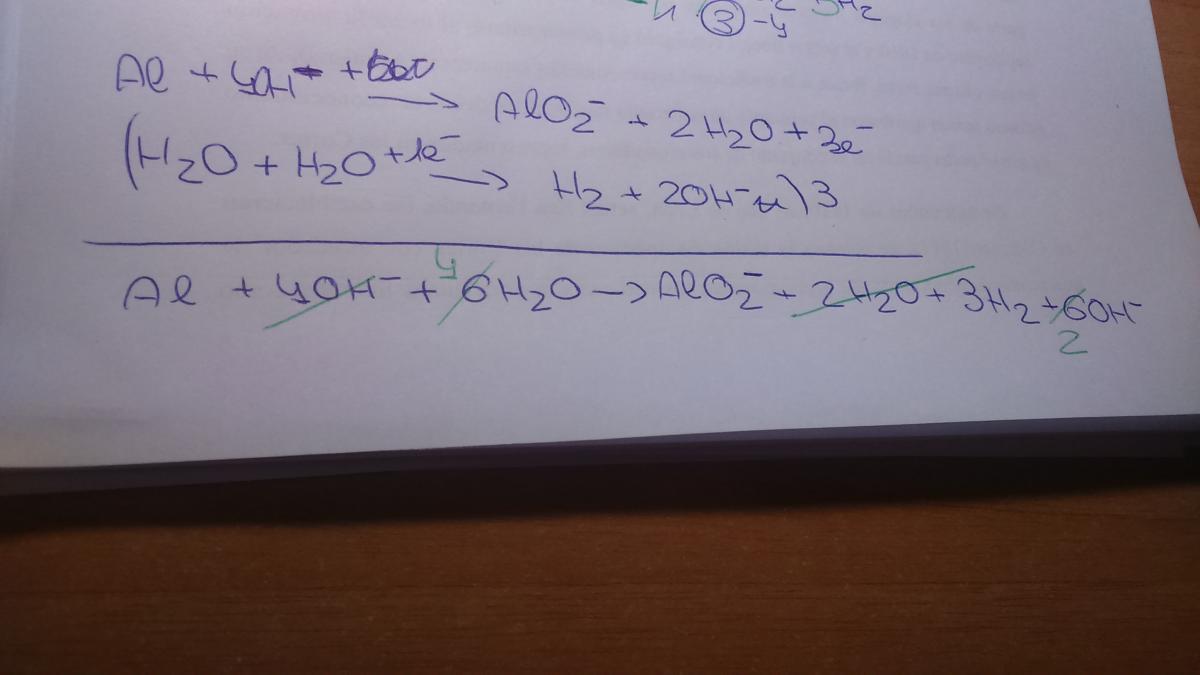 ③ -4 H2
Al + 4OH- + → AlO2- + 2H2O + 3e-
(H2O + H2O + 1e- → H2 + 2OH- ) 3
Al + 4OH- + 4 6H2O → AlO2- + 2H2O + 3H2 + 6OH-
2